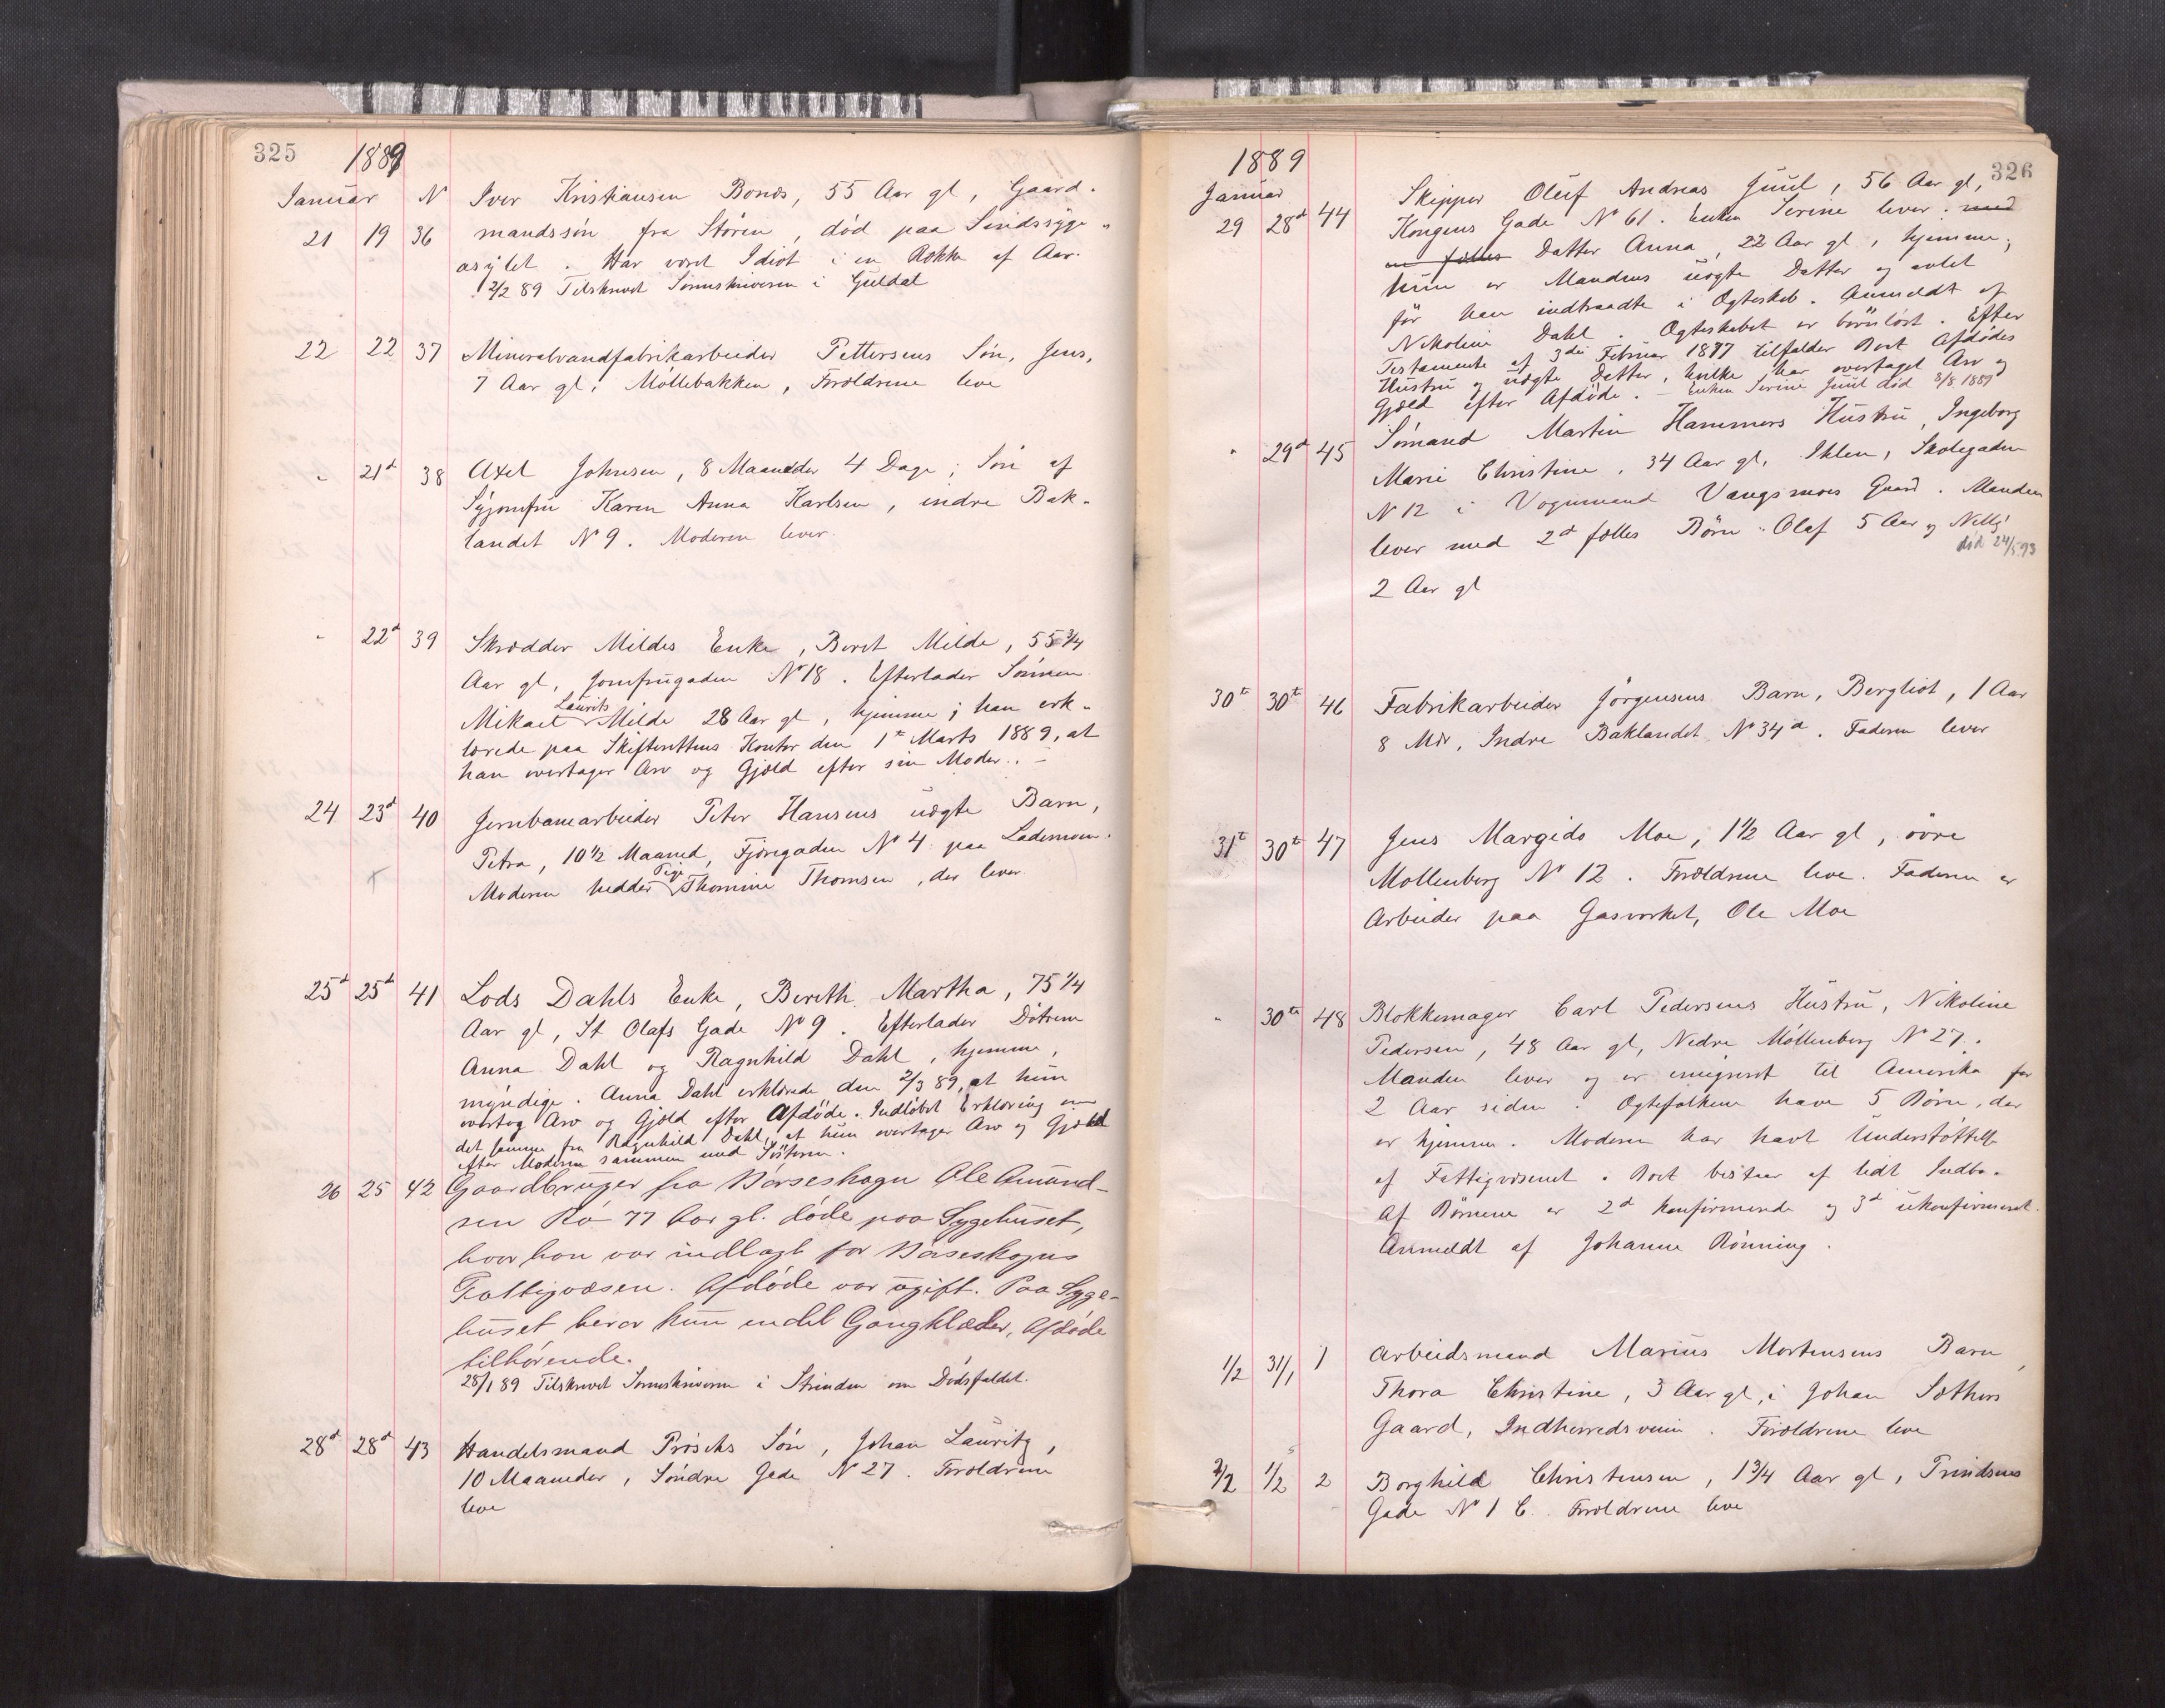 325
1889
Januar N Iver Kristiansen Bones, 55 Aar gl, Gaard-
21 19 36 mandssön fra Stören, död paa Sindssyge-
asylet. Har været Idiot i en Række af Aar.
2/2 89 Tilskrevet Sorenskriveren i Guldal
22 22 37 Mineralvandfabrikarbeider Pettersens Sön, Jens,
7 Aar gl, Möllebakken, Forældrene leve
" 21d 38 Axel Johnsen, 8 Maaneder 4 Dage, Sön af
Syjomfru Karen Anna Karlsen, indre Bak-
landet N 9. Moderen lever.
" 22d 39 Skrædder Mildes Enke, Beret Milde, 55 3/4
Aar gl, Jomfrugaden No 18. Efterlader Sönnen
Mikael Laurits Milde 28 Aar gl, hjemme; han erk-
lærede paa Skifterettens Kontor den 1te Marts 1889, at
han overtager Arv og Gjæld efter sin Moder. -
24 23d 40 Jernbanearbeider Peter Hansens uægte Barn,
Petra, 10 1/2 Maaned, Fjæregaden No 4 paa Lademoen.
Moderen hedder Pige Thomine Thomsen, der lever.
25d 25d 41 Lods Dahls Enke, Bereth Martha, 75 1/4
Aar gl, St Olafs Gade No 9. Efterlader Dötrene
Anna Dahl og Ragnhild Dahl, hjemme,
myndige. Anna Dahl erklærede den 2/3 89, at hun
overtog Arv og Gjæld efter Afdöde. Indløbet Erklæring om
det samme fra Ragnhild Dahl, at hun overtager Arv og Gjæld
efter Moderen sammen med Søsteren.
26 25 42 Gaardbruger fra Börseskogn Ole Amund-
sen Rö 77 Aar gl. döde paa Sygehuset,
hvor han var indlagt for Börseskogns
Fattigvæsen. Afdöde var ugift. Paa Syge-
huset beror kun endel Gangklæder, Afdöde
tilhörende.
28/1 89 Tilskrevet Sorenskriveren i Strinden om Dödsfaldet.
28d 28d 43 Handelsmand Pröschs Sön, Johan Lauritz,
10 Maaneder, Söndre Gade N 27. Forældrene
leve
326
1889
Januar Skipper Oluf Andreas Juul, 56 Aar gl,
29 28d 44 Kongens Gade No 61. Enken Serine lever. med
en fælles Datter Anna, 22 Aar gl, hjemme,
hun er Mandens uægte Datter og avlet
för han indtraadte i Ægteskab. Anmeldt af
Nikoline Dahl. Ægteskabet er barnlöst. Efter
Testamente af 3die Februar 1887 tilfalder Boet Afdödes
Hustru og uægte Datter, hvilke har overtaget Arv og
Gjæld efter Afdöde. - Enken Serine Juul död 8/8 1889
" 29d 45 Sömand Martin Hammers Hustru, Ingeborg
Marie Christine, 34 Aar gl, Ihlen, Skolegaden
N 12 i Vognmand Vangsmoes Gaard. Manden
lever med 2d fælles Börn: Olaf 5 Aar og Nelly
död 24/5 93
2 Aar gl
30te 30te 46 Fabrikarbeider Jörgensens Barn, Bergliot, 1 Aar
8 Mdr, Indre Baklandet No 34a. Faderen lever
31te 30te 47 Jens Margido Moe, 1 1/2 Aar gl, övre
Mollenberg No 12. Forældrene leve. Faderen er
Arbeider paa Gasværket, Ole Moe
" 30te 48 Blokkemager Carl Pedersens Hustru, Nikoline
Pedersen, 48 Aar gl, Nedre Möllenberg No 27.
Manden lever og er emigreret til Amerika for
2 Aar siden. Ægtefolkene have 5 Börn, der
er hjemme. Moderen har havt Understöttelse
af Fattigvæsenet. Boet bestaar af lidt Indbo.
Af Börnene er 2d konfirmerede og 3d ukonfirmeret.
Anmeldt af Johanne Rönning.
1/2 31/1 1 Arbeidsmand Marius Mortensens Barn,
Thora Christine, 3 Aar gl, i Johan Sæthers
Gaard, Indherredsveien. Forældrene leve
2/2 1/2 2 Borghild Christensen, 1 3/4 Aar gl, Trindsens
Gade No 1 C. Forældrene leve